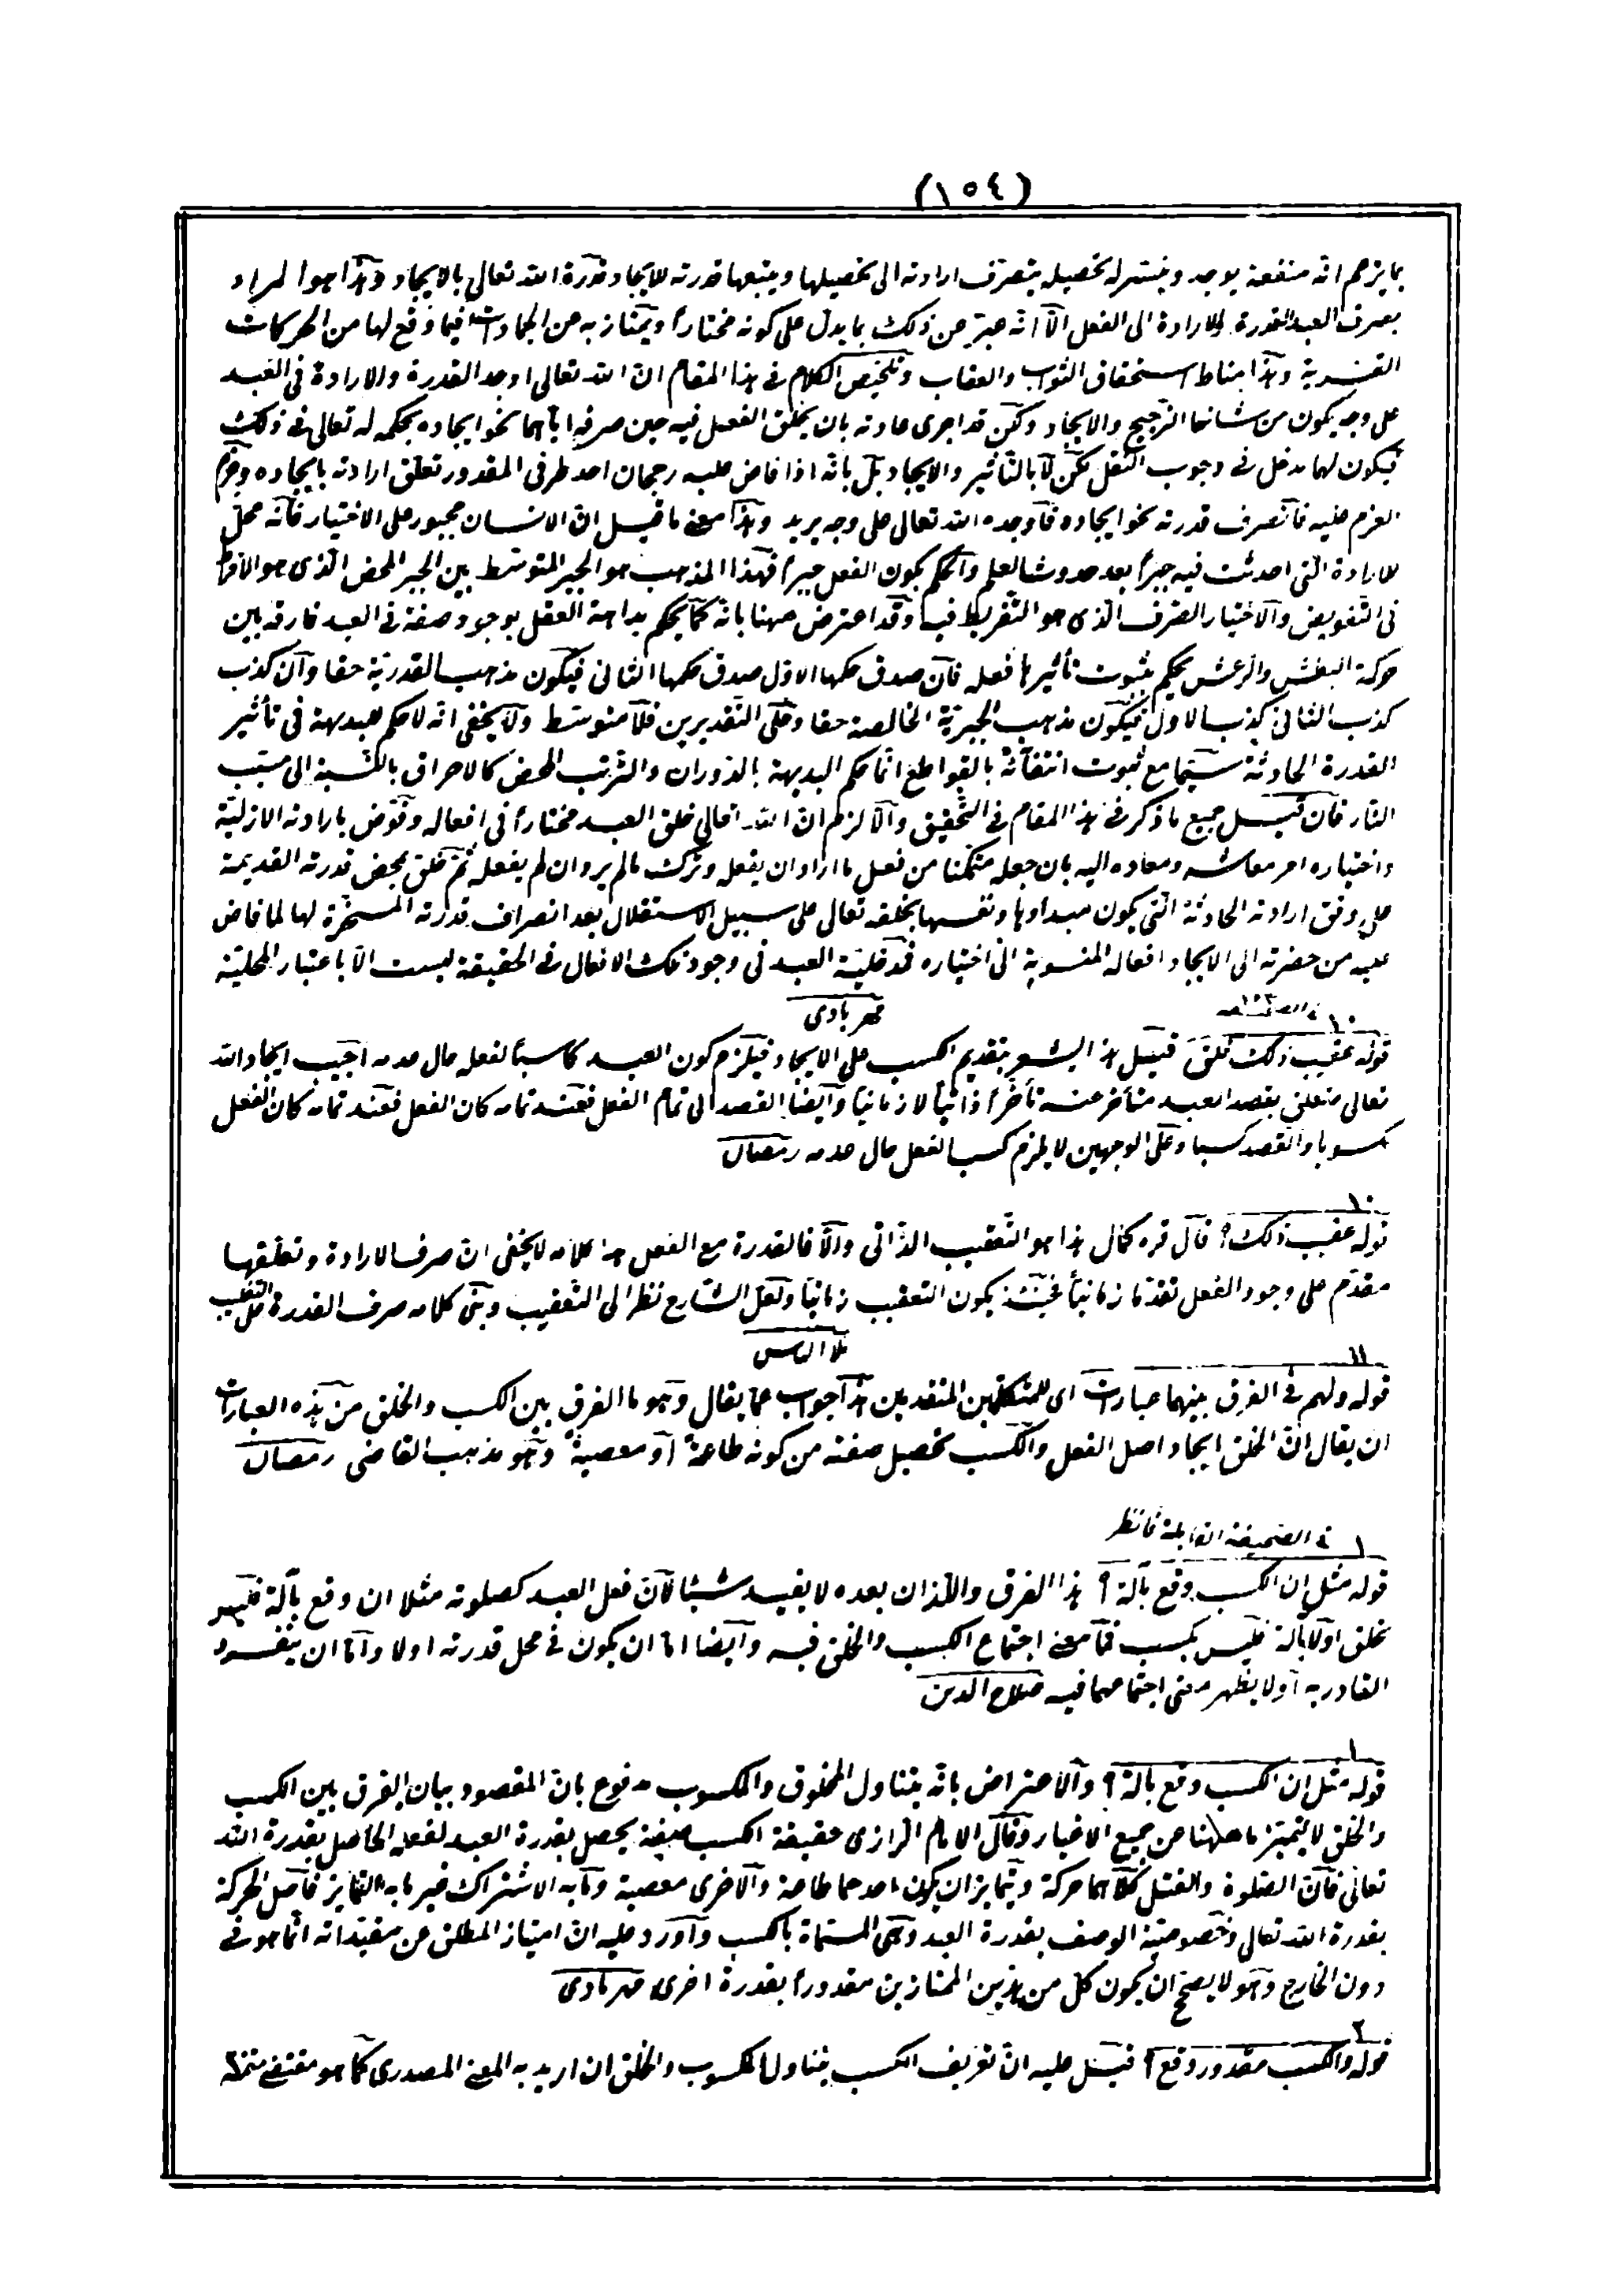 (١٥٤)
بما يزعم انه منفعة يوجد ويتيسر له تحصيله يتصرف ارادته الى تحصيلها ويتبعها قدرته للايجاد وقدرة الله تعالى بالايجاد وهذا هو المراد
بصرف العبد القدرة والارادة الى الفعل الا انه عبر عن ذلك بما يدل على كونه مختارا ويمتاز به عن الجمادات فيما وقع لها من الحركات
القسرية وهذا مناط استحقاق الثواب والعقاب وتلخيص الكلام فى هذا المقام ان الله تعالى اوجد القدرة والارادة فى العبد
على وجه يكون من شانها الترجيح والايجاد ولكن قد اجرى عادته بان يخلق الفعل فيه حين صرفه اياهما نحو ايجاده بحكمة له تعالى فى ذلك
فيكون لها مدخل فى وجوب الفعل لكن لا بالتأثير والايجاد بل بانه اذا فاض عليه رجحان احد طرفى المقدور تعلق ارادته بايجاده وجزم
العزم عليه فانصرف قدرته نحو ايجاده فاوجده الله تعالى على وجه يريد وهذا معنى ما قيل ان الانسان مجبور على الاختيار فانه محل
للارادة التى احدثت فيه جبرا بعد حدوث العلم والحكم بكون الفعل خيرا فهذا المذهب هو الجبر المتوسط بين الجبر المحض الذى هو الافراط
فى التفويض والاختيار الصرف الذى هو التفريط فيه وقد اعترض ههنا بانه كما يحكم بداهة العقل بوجود صفة فى العبد فارقة بين
حركة البطش والرعش يحكم بثبوت تأثيرها فعله فان صدق حكمها الاول صدق حكمها الثانى فيكون مذهب القدرية حقا وان كذب
كذب الثانى كذب الاول فيكون مذهب الجبرية الخالصة حقا وعلى التقديرين فلا متوسط ولا يخفى انه لا حكم للبديهة فى تأثير
القدرة الحادثة سيما مع ثبوت انتفائه بالقواطع انما حكم البديهة بالدوران والترتب المحض كالاحراق بالنسبة الى مسبب
النار فان قيل جميع ما ذكر فى هذا المقام فى التحقيق والا لزم ان الله تعالى خلق العبد مختارا فى افعاله وفوض بارادته الازلية
واختياره امر معاشه ومعاده اليه بان جعله متمكنا من فعل ما اراد ان يفعله وترك ما لم يرد ان لم يفعله ثم خلق بمحض قدرته القديمة
على وفق ارادته الحادثة التى يكون مبداها ونفسها بخلقه تعالى على سبيل الاستقلال بعد انصراف قدرته المسخرة لها لما فاض
عليه من حضرته الى الايجاد افعاله المنسوبة الى اختياره فمدخلية العبد فى وجود تلك الافعال فى الحقيقة ليست الا باعتبار المحلية
شهربادى
١٠
قوله عقيب ذلك خلق قيل هذا يشعر بتقديم الكسب على الايجاد فيلزم كون العبد كاسبا لفعله حال عدمه اجيب ايجاد الله
تعالى متعلق بقصد العبد متأخر عنه تأخرا ذاتيا لا زمانيا وايضا القصد الى تمام الفعل فعند تمامه كان الفعل فعند تمامه كان الفعل
مكسوبا والقصد كسبا وعلى الوجهين لا يلزم كسب الفعل حال عدمه رمضان
١٠
قوله عقيب ذلك؟ قال قره كمال هذا هو التعقيب الذاتى والا فالقدرة مع الفعل هذا كلامه لا يخفى ان صرف الارادة وتعلقها
مقدم على وجود الفعل تقدما زمانيا فحينئذ يكون التعقيب زمانيا ولعل الشارح نظر الى التعقيب وبنى كلامه صرف القدرة على التعقيب
ملا الياس
١١
قوله ولهم فى الفرق بينهما عبارات اى للمتكلمين المتقدمين هذا جواب عما يقال وهو ما الفرق بين الكسب والخلق من هذه العبارات
ان يقال ان الخلق ايجاد اصل الفعل والكسب تحصيل صفته من كونه طاعة او معصية وهو مذهب القاضى رمضان
فى الصحيفة القابلة فانظر
١
قوله مثل ان الكسب وقع بآلة؟ هذا الفرق واللذان بعده لا يفيد شيئا لان فعل العبد كصلوته مثلا ان وقع بآلة فليس
بخلق او لا بآلة فليس بكسب فما معنى اجتماع الكسب والخلق فيه وايضا اما ان يكون فى محل قدرته او لا واما ان ينفرد
القادر به او لا يظهر معنى اجتماعهما فيه صلاح الدين
١
قوله مثل ان الكسب وقع بآلة؟ والاعتراض بانه يتناول المخلوق والمكسوب مدفوع بان المقصود بيان الفرق بين الكسب
والخلق لا لتميز ماهيتهما عن جميع الاغيار وقال الامام الرازى حقيقة الكسب صفة يحصل بقدرة العبد لفعله الحاصل بقدرة الله
تعالى فان الصلوة والقتل كلاهما حركة ويتمايزان بكون احدهما طاعة والاخرى معصية وما به الاشتراك غير ما به التمايز فاصل الحركة
بقدرة الله تعالى وخصوصية الوصف بقدرة العبد وهى المسماة بالكسب واورد عليه ان امتياز المطلق عن مقيداته انما هو فى
دون الخارج وهو لا يصحح ان يكون كل من هذين الممتازين مقدورا بقدرة اخرى شهربادى
٢
قوله والكسب مقدور وقع؟ قيل عليه ان تعريف الكسب يتناول المكسوب والخلق ان اريد به المعنى المصدرى كما هو مقتضى